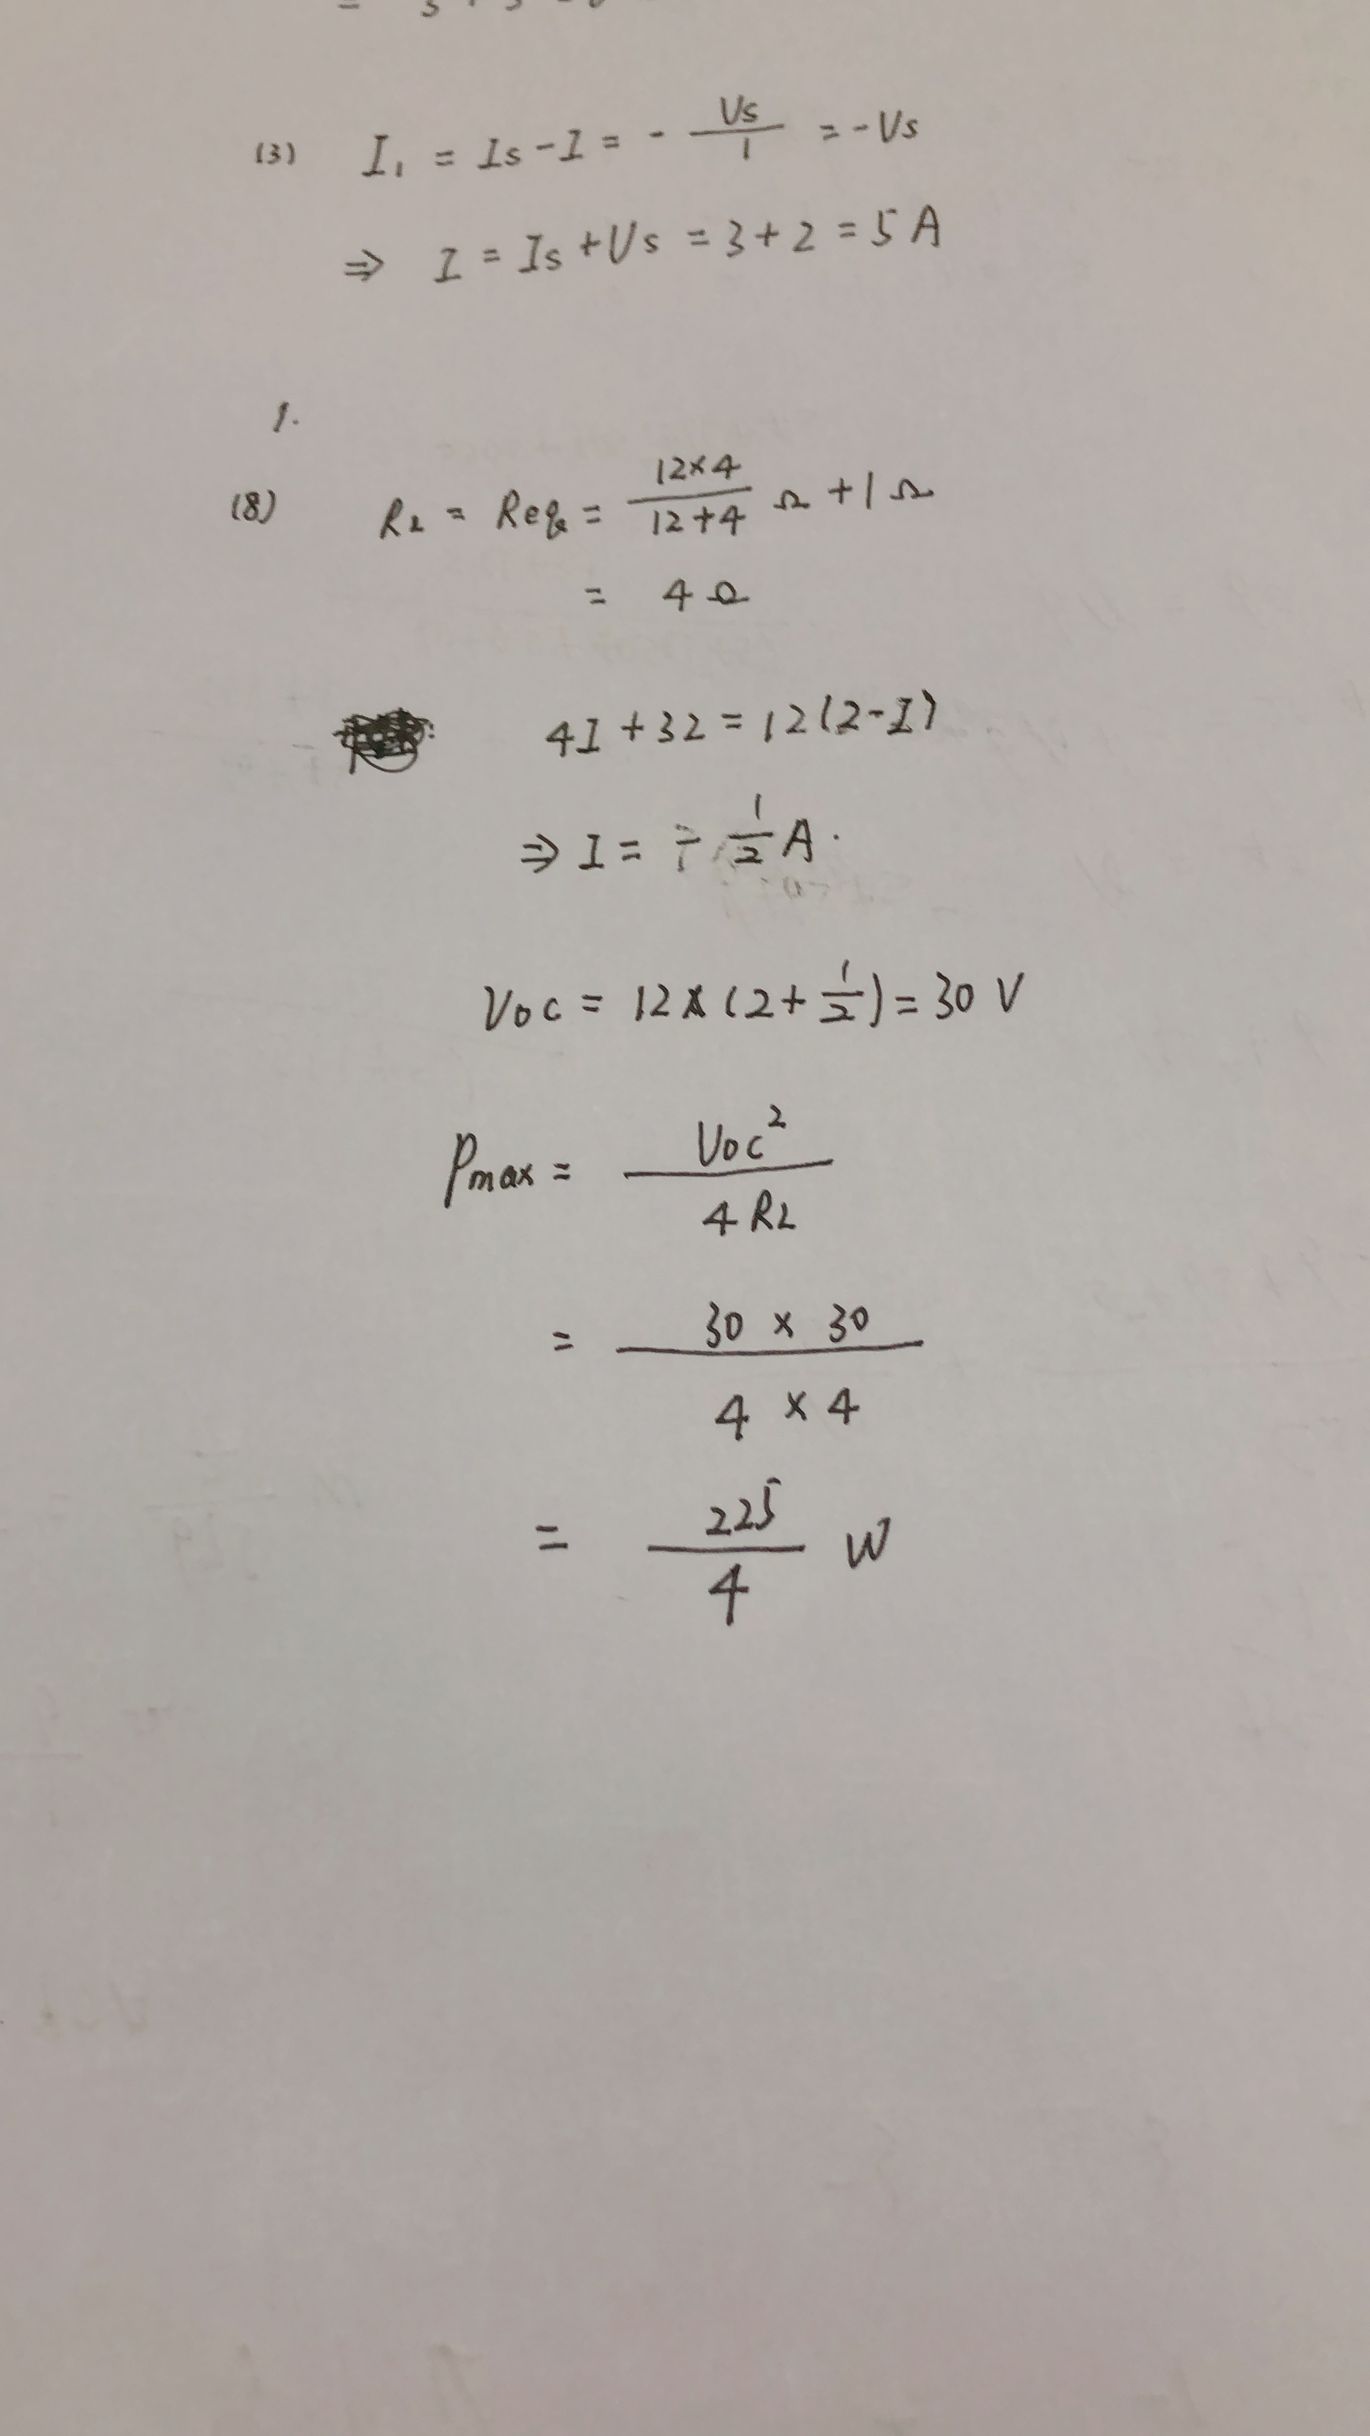 (3) I₁ = Is - I = - Us/1 = -Us
⇒ I = Is + Us = 3 + 2 = 5 A
1.
(8) RL = Req = 12×4/12+4 Ω + 1 Ω
= 4 Ω
4I + 32 = 12(2-I)
⇒ I = - 1/2 A.
Voc = 12 × (2 + 1/2) = 30 V
Pmax = Voc²/4RL
= 30 × 30/4 × 4
= 225/4 W